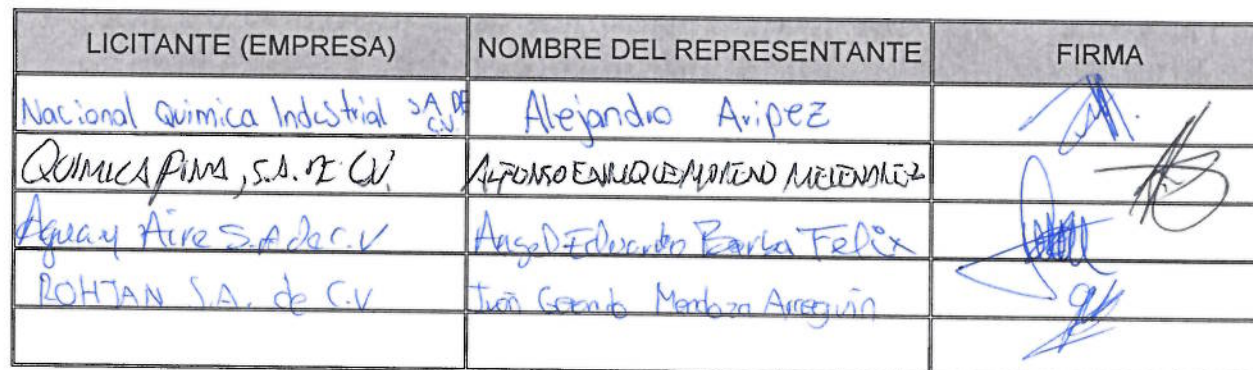 LICITANTE (EMPRESA) NOMBRE DEL REPRESENTANTE FIRMA
Nacional Quimica Industrial S.A. DE C.V. Alejandro Aripez
QUIMICA PIMA, S.A. DE CV. ALFONSO ENRIQUE MORENO MELENDREZ
Agua y Aire S.A de C.V Angel Eduardo Barba Felix
ROHTAN S.A. de C.V Iván Gerardo Mendoza Arreguin